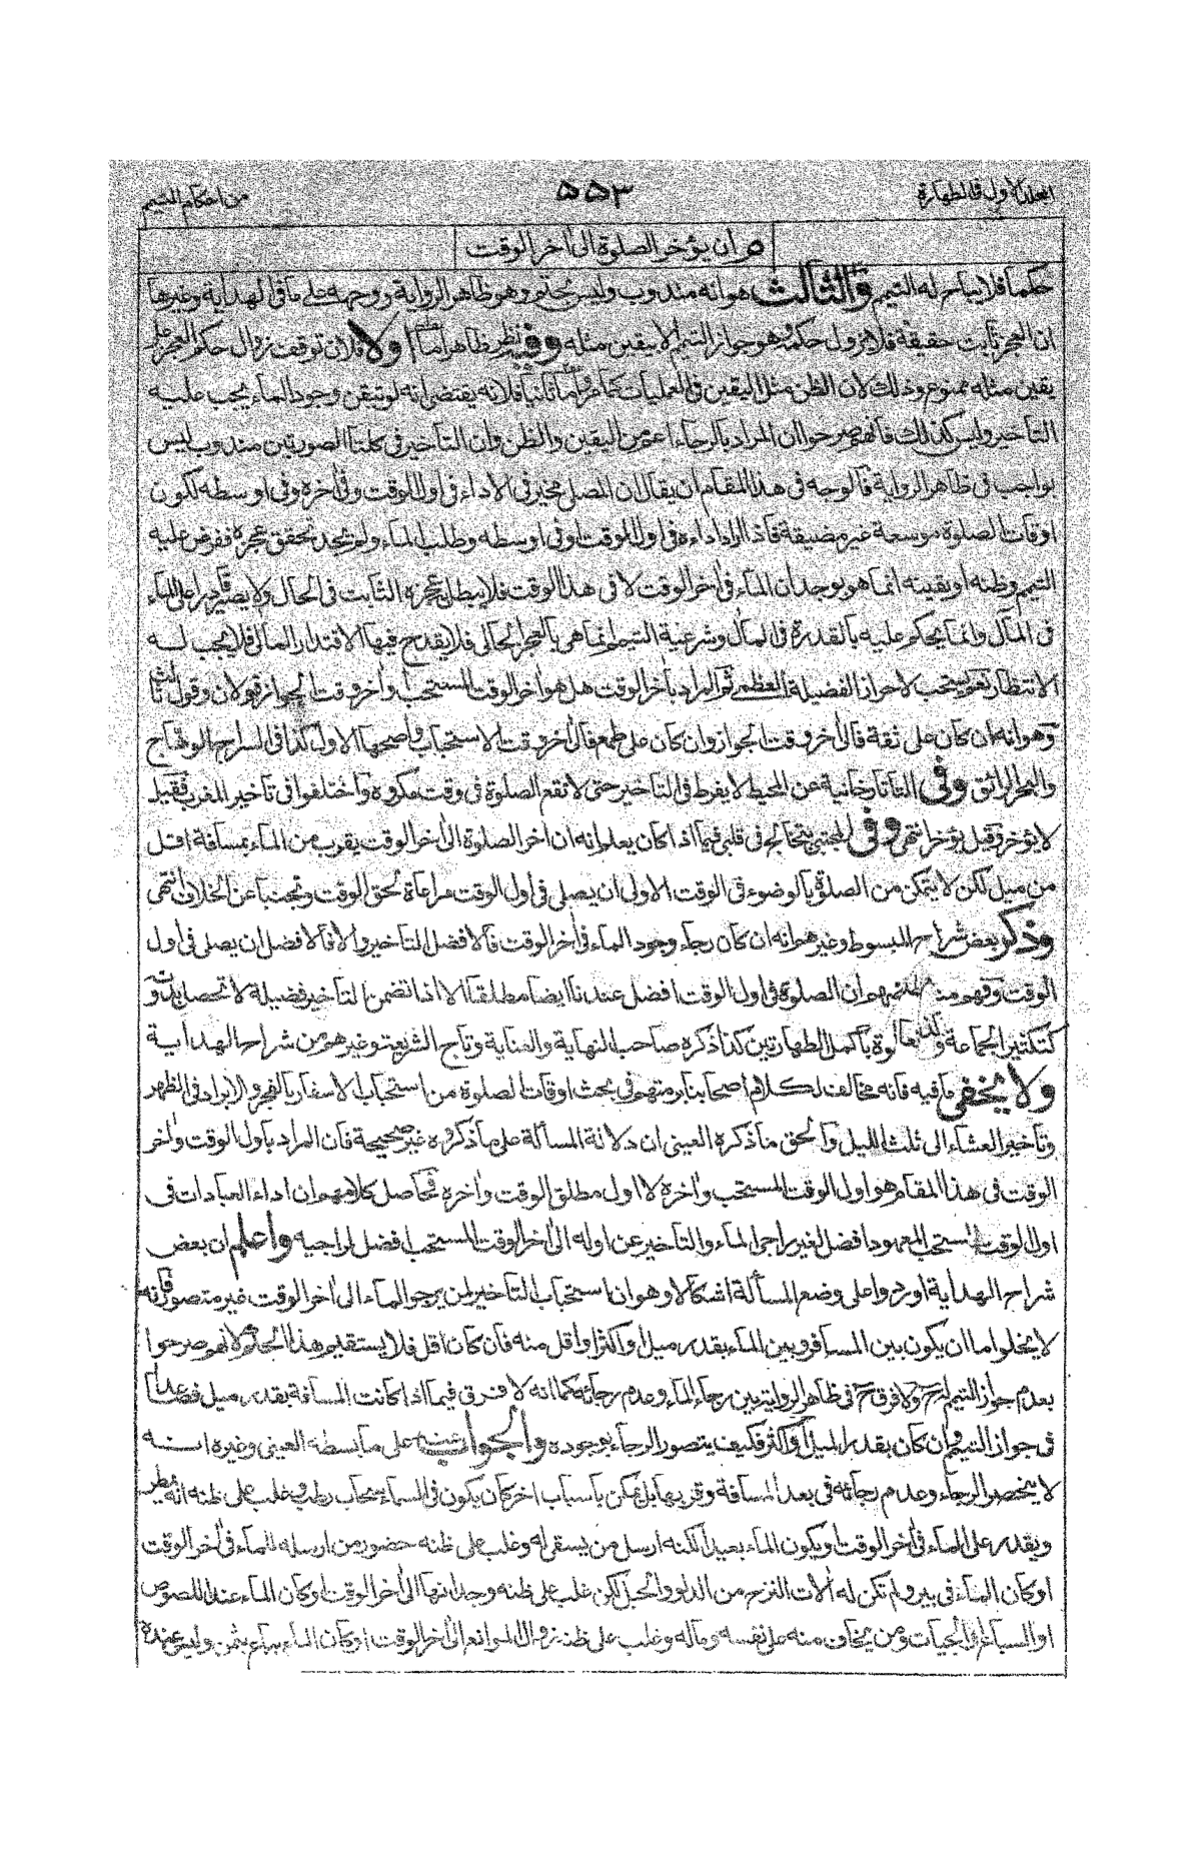 المجلد الاول فى الطهارة ۵۵۳ من احكام التيمم
ص ان يؤخر الصلوة الى اٰخر الوقت
حكما فلا يباح له التيمم والثالث هو انه مندوب وليس بمحتم وهو ظاهر الرواية ووجهه على ما فى الهداية وغيرها
ان العجز ثابت حقيقة فلا يزول حكمه وهو جواز التيمم الا بيقين مثله وفيه نظر ظاهر اما اولا فلان توقف زوال حكم العجز على
يقين مثله ممنوع وذلك لان الظن مثل اليقين فى العمليات كما مر واما ثانيا فلانه يقتضى انه لو تيقن وجود الماء يجب عليه
التاخير وليس كذلك فانهم صرحوا ان المراد بالرجاء اعم من اليقين والظن وان التاخير فى كلتا الصورتين مندوب ليس
بواجب فى ظاهر الرواية فالوجه فى هذا المقام ان يقال ان المصلى مخير فى الاداء فى اول الوقت وفى اٰخره وفى اوسطه لكون
اوقات الصلوة موسعة غير مضيقة فاذا اراد اداءه فى اول الوقت او فى اوسطه وطلب الماء ولم يجد تحقق عجزه ففرض عليه
التيمم وظنه او يقينه انما هو بوجدان الماء فى اٰخر الوقت لا فى هذا الوقت فلا يبطل عجزه الثابت فى الحال ولا يصير قادرا على الماء
فى المآل وانما يحكم عليه بالقدرة فى المآل وشرعية التيمم انما هى بالعجز الحالى فلا يقدح فيها الاقتدار المآلى فلا يجب له
الانتظار نعم يستحب لاحراز الفضيلة العظمى ثم المراد باٰخر الوقت هل هو اٰخر الوقت المستحب او اٰخر وقت الجواز قولان وقول ثالث
وهو انه ان كان على ثقة فالى اٰخر وقت الجواز وان كان على طمع فالى اٰخر وقت الاستحباب واصحها الاول كذا فى السراج الوهاج
والبحر الرائق وفى التاتارخانية عن المحيط لا يفرط فى التاخير حتى لا تقع الصلوة فى وقت مكروه واختلفوا فى تاخير المغرب فقيل
لا يؤخر وقيل يؤخر انتهى وفى المجتبى يتخالج فى قلبى فيما اذا كان يعلم انه ان اخر الصلوة الى اٰخر الوقت يقرب من الماء بمسافة اقل
من ميل لكن لا يتمكن من الصلوة بالوضوء فى الوقت الاولى ان يصلى فى اول الوقت مراعاة لحق الوقت وتجنبا عن الخلاف انتهى
وذكر بعض شراح المبسوط وغيرهم انه ان كان رجاء وجود الماء فى اٰخر الوقت فالافضل التاخير والا فالافضل ان يصلى فى اول
الوقت وفهم منه بعضهم ان الصلوة فى اول الوقت افضل عندنا ايضا مطلقا الا اذا تضمن التاخير فضيلة لا تحصل بدونه
كتكثير الجماعة والصلوة باكمل الطهارتين كذا ذكره صاحب النهاية والعناية وتاج الشريعة وغيرهم من شراح الهداية
ولا يخفى ما فيه فانه مخالف لكلام اصحابنا برمتهم فى بحث اوقات الصلوة من استحباب الاسفار بالفجر والابراد فى الظهر
وتاخير العشاء الى ثلث الليل والحق ما ذكره العينى ان دلالة المسألة على ما ذكروه غير صحيحة فان المراد باول الوقت واٰخر
الوقت فى هذا المقام هو اول الوقت المستحب واٰخره لا اول مطلق الوقت واٰخره فحاصل كلامهم ان اداء العبادات فى
اول الوقت المستحب المعهود افضل لغير راجى الماء والتاخير عن اوله الى اٰخر الوقت المستحب افضل لراجيه واعلم ان بعض
شراح الهداية اوردوا على وضع المسألة اشكالا وهو ان استحباب التاخير لمن يرجو الماء الى اٰخر الوقت غير متصور فانه
لا يخلو اما ان يكون بين المسافر وبين الماء بقدر ميل او اكثر او اقل منه فان كان اقل فلا يستقيم هذا الحكم لانهم صرحوا
بعدم جواز التيمم له ح ولا فرق ح فى ظاهر الرواية بين رجاء الماء وعدم رجائه كما انه لا فرق فيما اذا كانت المسافة بقدر ميل فصاعدا
فى جواز التيمم وان كان بقدر الميل او اكثر فكيف يتصور الرجاء بوجوده والجواب عنه على ما بسطه العينى وغيره انه
لا ينحصر الرجاء وعدم رجائه فى بعد المسافة وقربها بل يمكن باسباب اخر كان يكون فى السماء سحاب رطب وغلب على ظنه انه يمطر
ويقدر على الماء فى اٰخر الوقت او يكون الماء بعيدا لكنه ارسل من يستقى له وغلب على ظنه حضور من ارسله للماء فى اٰخر الوقت
او كان الماء فى بير ولم تكن له اٰلات النزح من الدلو والحبل لكن غلب على ظنه وجدانها الى اٰخر الوقت او كان الماء عند اللصوص
او السباع والحيات ومن يخاف منه على نفسه وماله وغلب على ظنه زوال الموانع الى اٰخر الوقت او كان الماء يباع بثمن وليس عنده